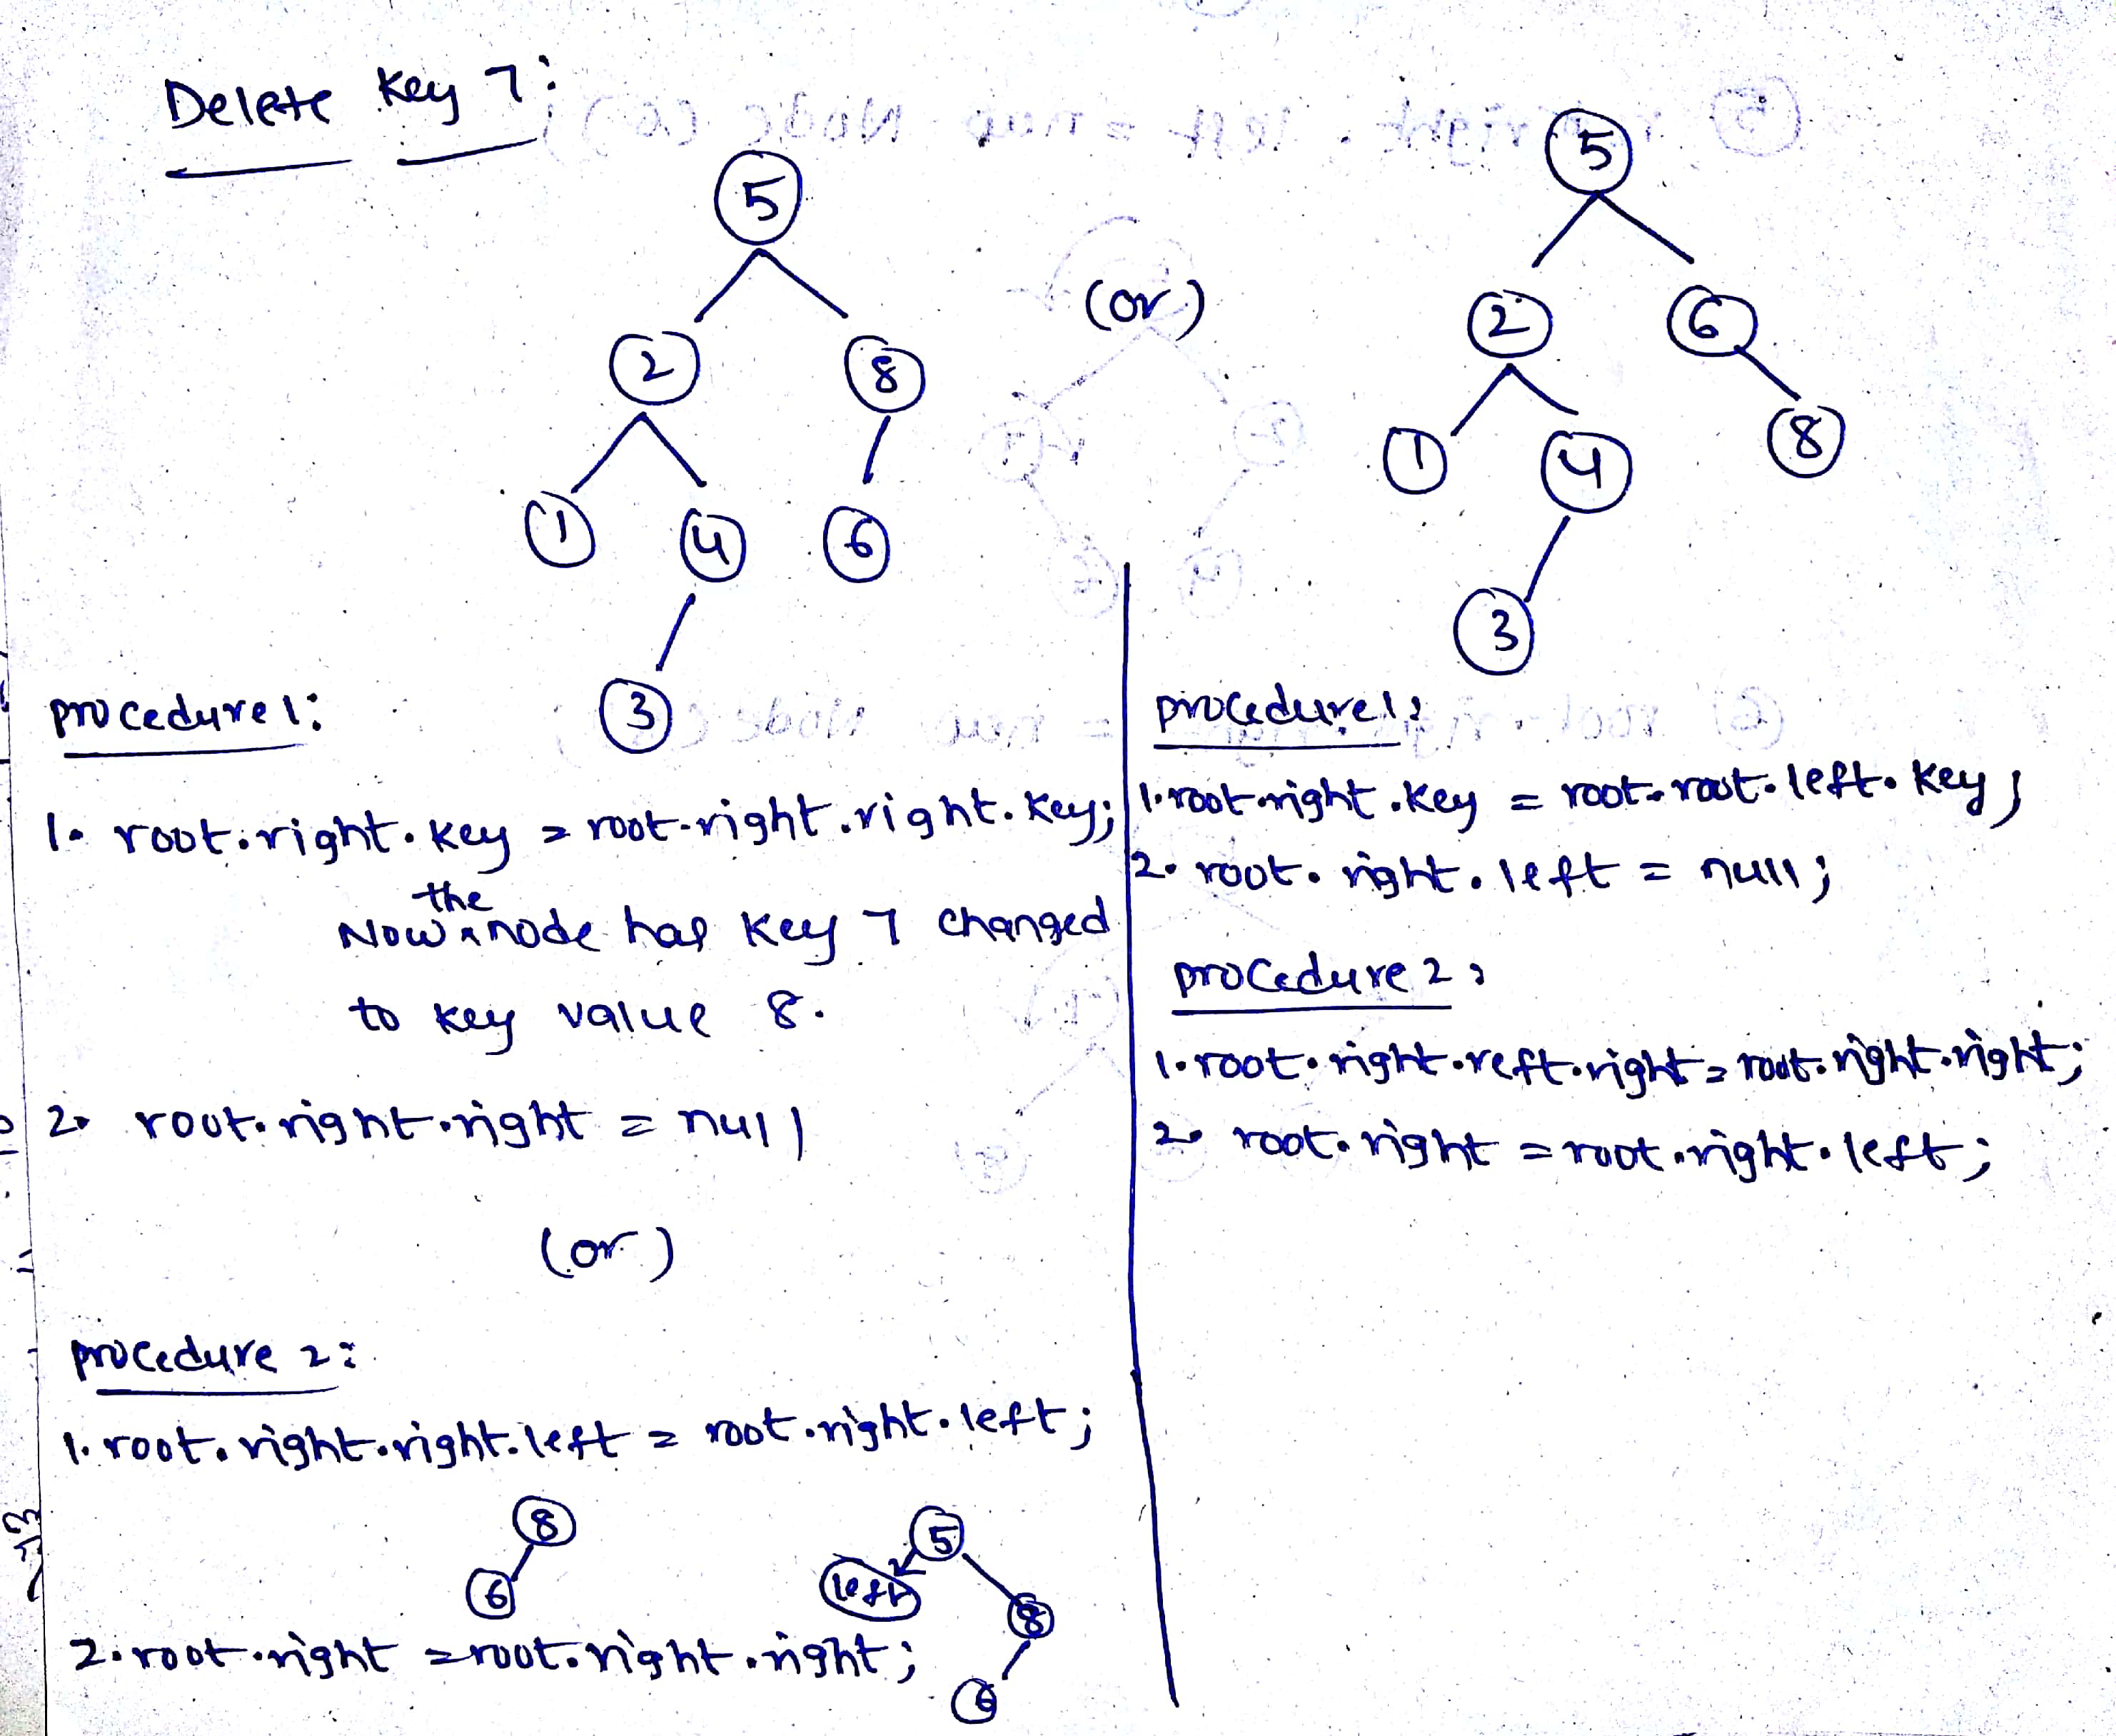 Delete Key 7:
5
2
8
1
4
6
3
(or)
5
2
6
1
4
8
3
procedure 1:
1. root.right.key = root.right.right.key;
the
Now ^ node has key 7 changed
to key value 8.
2. root.right.right = null
(or)
procedure 2:
1. root.right.right.left = root.right.left;
8
6
5
left
8
6
2. root.right = root.right.right;
procedure 1:
1. root.right.key = root.root.left.key;
2. root.right.left = null;
procedure 2:
1. root.right.reft.right = root.right.right;
2. root.right = root.right.left;